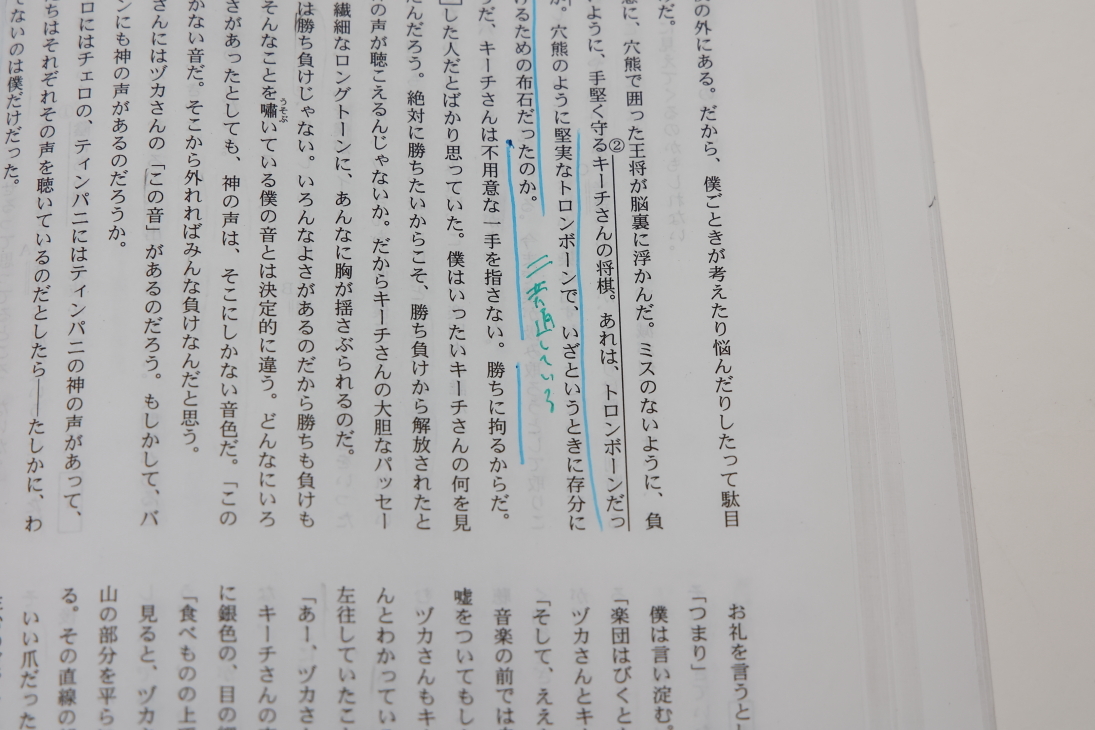 の外にある。だから、僕ごときが考えたり悩んだりしたって駄目
のだ。
に、穴熊で囲った王将が脳裏に浮かんだ。ミスのないように、負
ように、手堅く守るキーチさんの将棋。あれは、トロンボーンだっ
②
穴熊のように堅実なトロンボーンで、いざというときに存分に
けるための布石だったのか。
一貫している
だ、キーチさんは不用意な一手を指さない。勝ちに拘るからだ。
した人だとばかり思っていた。僕はいったいキーチさんの何を見
んだろう。絶対に勝ちたいからこそ、勝ち負けから解放されたと
の声が聴こえるんじゃないか。だからキーチさんの大胆なパッセー
繊細なロングトーンに、あんなに胸が揺さぶられるのだ。
は勝ち負けじゃない。いろんなよさがあるのだから勝ちも負けも
そんなことを嘯いている僕の音とは決定的に違う。どんなにいろ
うそぶ
さがあったとしても、神の声は、そこにしかない音色だ。「この
かない音だ。そこから外れればみんな負けなんだと思う。
さんにはヅカさんの「この音」があるのだろう。もしかして、バ
ンにも神の声があるのだろうか。
ロにはチェロの、ティンパニにはティンパニの神の声があって、
ちはそれぞれその声を聴いているのだとしたら――たしかに、わ
てないのは僕だけだった。
お礼を言うと
「つまり」
僕は言い淀む。
「楽団はびくと
ヅカさんとキ
「そして、ええ
音楽の前では
嘘をついてもし
ヅカさんもキ
んとわかってい
左往していたこ
「あー、ヅカさ
キーチさんの
に銀色の、目の
「食べものの上
見ると、ヅカ
山の部分を平ら
る。その直線の
いい爪だった